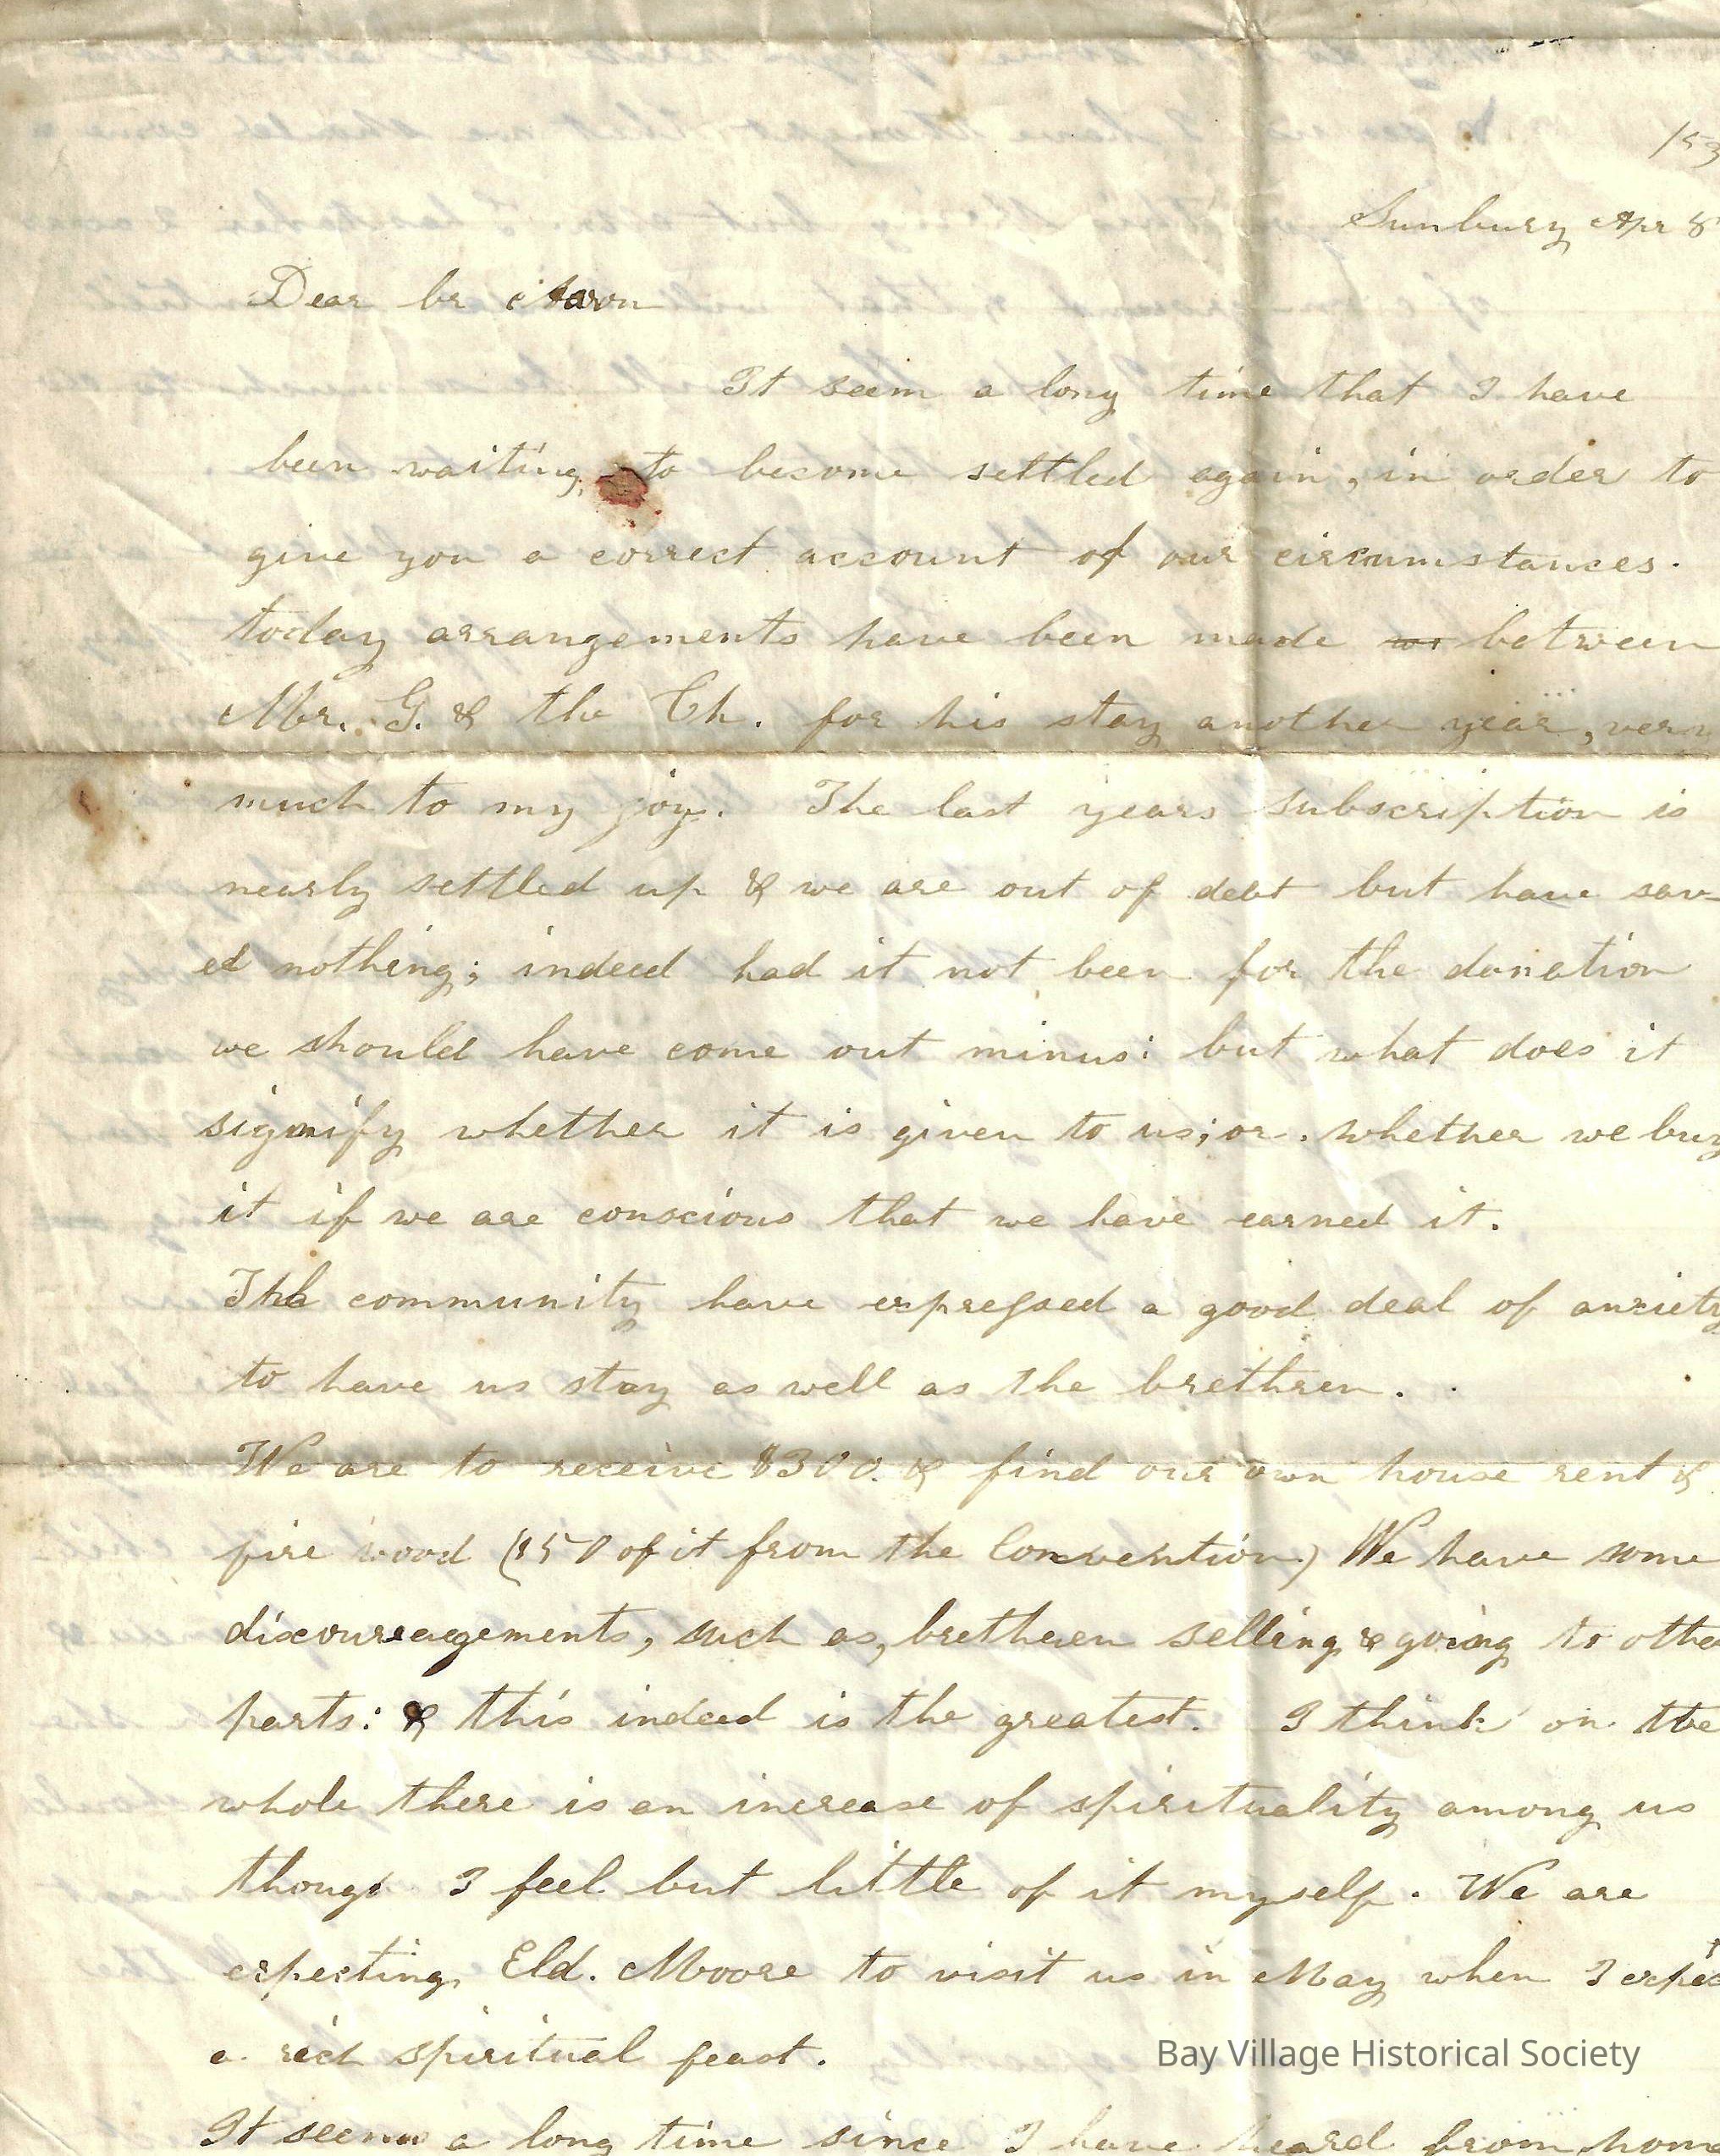 153
Sunbury Apr 8
Dear br Aaron
It seem a long time that I have
been waiting to become settled again, in order to
give you a correct account of our circumstances.
today arrangements have been made between
Mr. G. & the Ch. for his stay another year, very
much to my joy. The last years subscription is
nearly settled up & we are out of debt but have sav-
ed nothing; indeed had it not been for the donation
we should have come out minus: but what does it
signify whether it is given to us; or whether we buy
it if we are conscious that we have earned it.
The community have expressed a good deal of anxiety
to have us stay as well as the brethren.
We are to receive $300. & find our own house rent &
fire wood ($50 of it from the Convention) We have some
discourreagements, such as, brethren selling & going to othe
parts: & this indeed is the greatest. I think on the
whole there is an increase of spirituality among us
though I feel but little of it myself. We are
expecting Eld. Moore to visit us in May when I expect
a rich spiritual feast.
It seems a long time since I have heard from home
Bay Village Historical Society